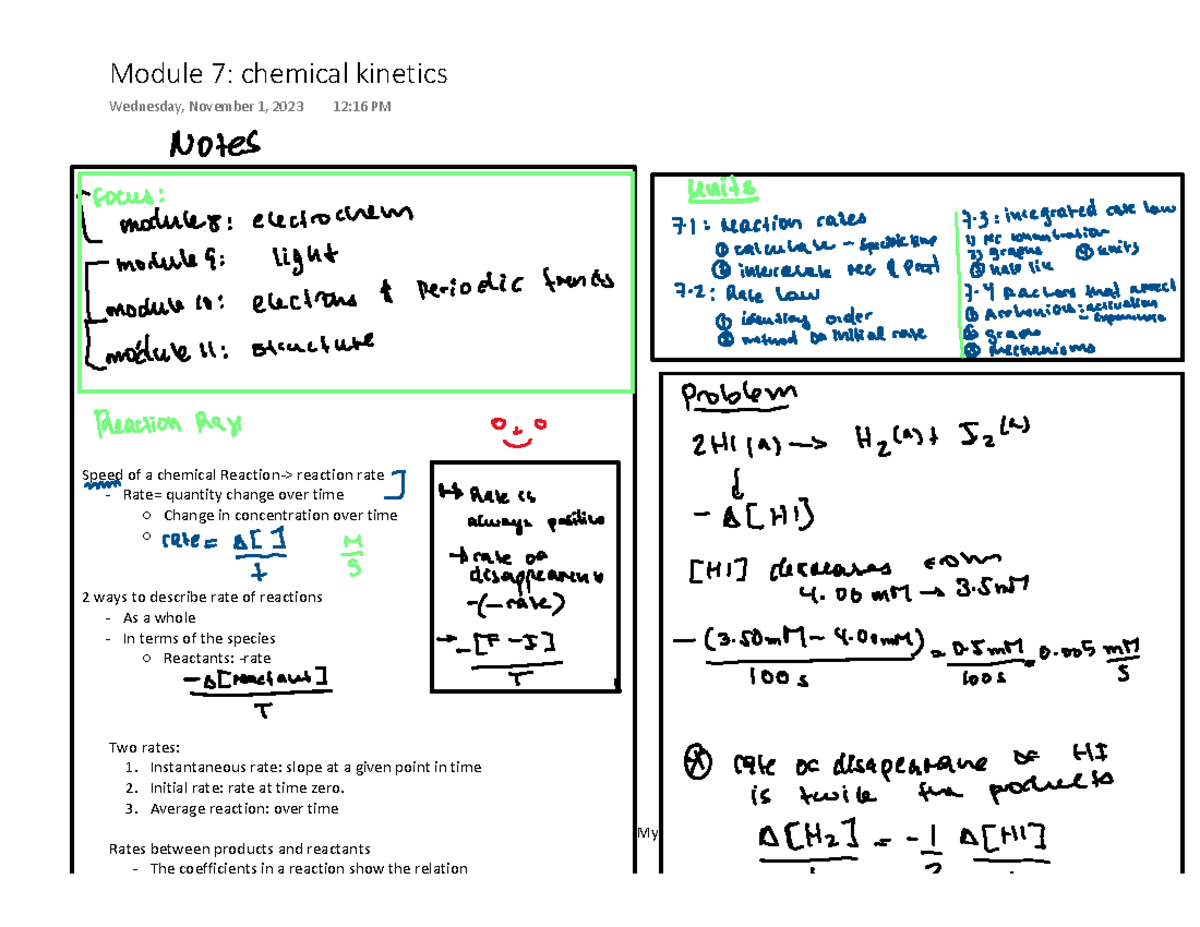 Module 7: chemical kinetics
Wednesday, November 1, 2023 12:16 PM
Notes
Focus:
module 8: electrochem
module 9: light
module 10: electrons & Periodic trends
module 11: structure
Units
7.1: reaction rates
① calculate - specific time
② interrelate rec & Prod
7.2: Rate law
① identify order
② method of initial rate
7.3: integrated rate law
1) rec concentration
2) graphs ④ units
③ half life
7.4 factors that affect
① Arrhenious: activation
② graphs
③ mechanisms
Reaction
Speed of a chemical Reaction-> reaction rate
- Rate= quantity change over time
○ Change in concentration over time
○ rate = Δ[ ] / t M/S
2 ways to describe rate of reactions
- As a whole
- In terms of the species
○ Reactants: -rate
-Δ[reactant] / T
Rate is
always positive
→ rate of
disappearence
-(-rate)
→ -[F - I] / T
Two rates:
1. Instantaneous rate: slope at a given point in time
2. Initial rate: rate at time zero.
3. Average reaction: over time
Rates between products and reactants
- The coefficients in a reaction show the relation
Problem
2HI (g) → H2 (g) + I2 (g)
↓
- Δ[HI]
[HI] decreases from
4.00 mM → 3.5mM
-(3.50mM - 4.00mM) / 100 s = 0.5mM / 100s = 0.005 mM/S
rate of disapearane of HI
is twice the products
My
Δ[H2] = -1/2 Δ[HI]